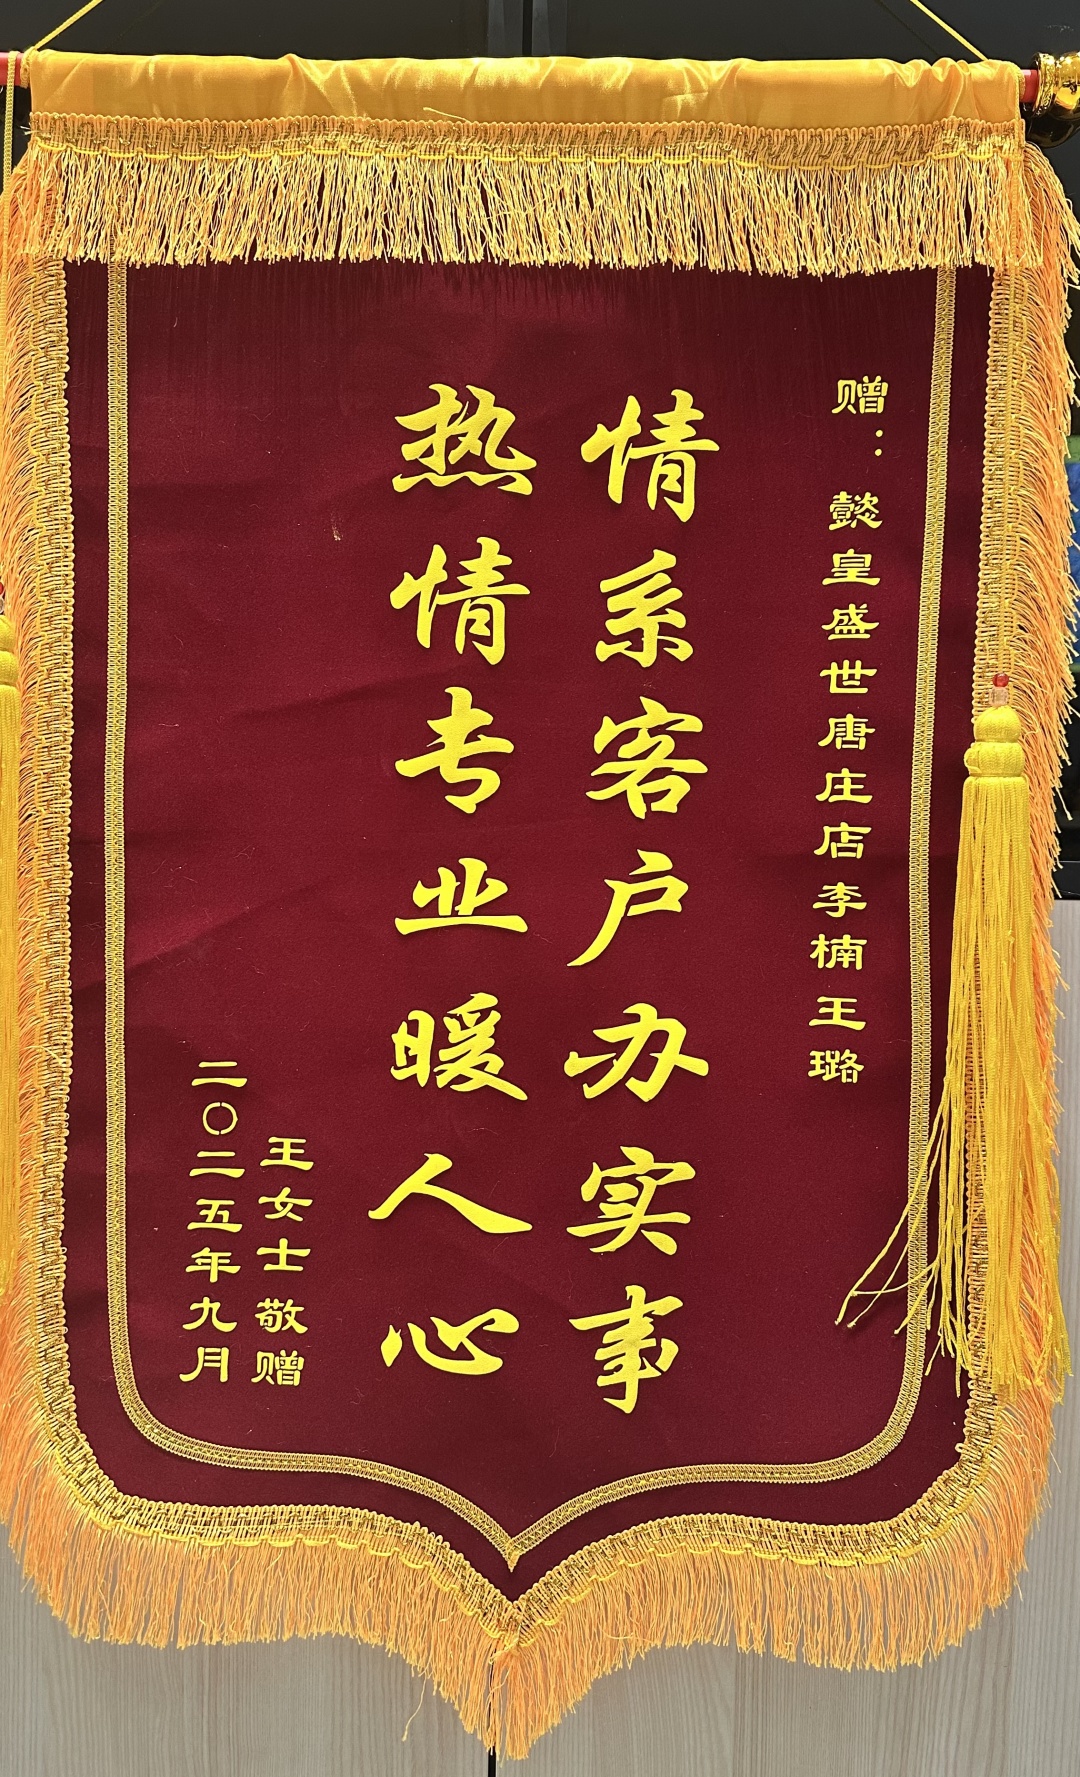 赠：懿皇盛世唐庄店李楠王璐
情系客户办实事
热情专业暖人心
王女士敬赠
二〇二五年九月